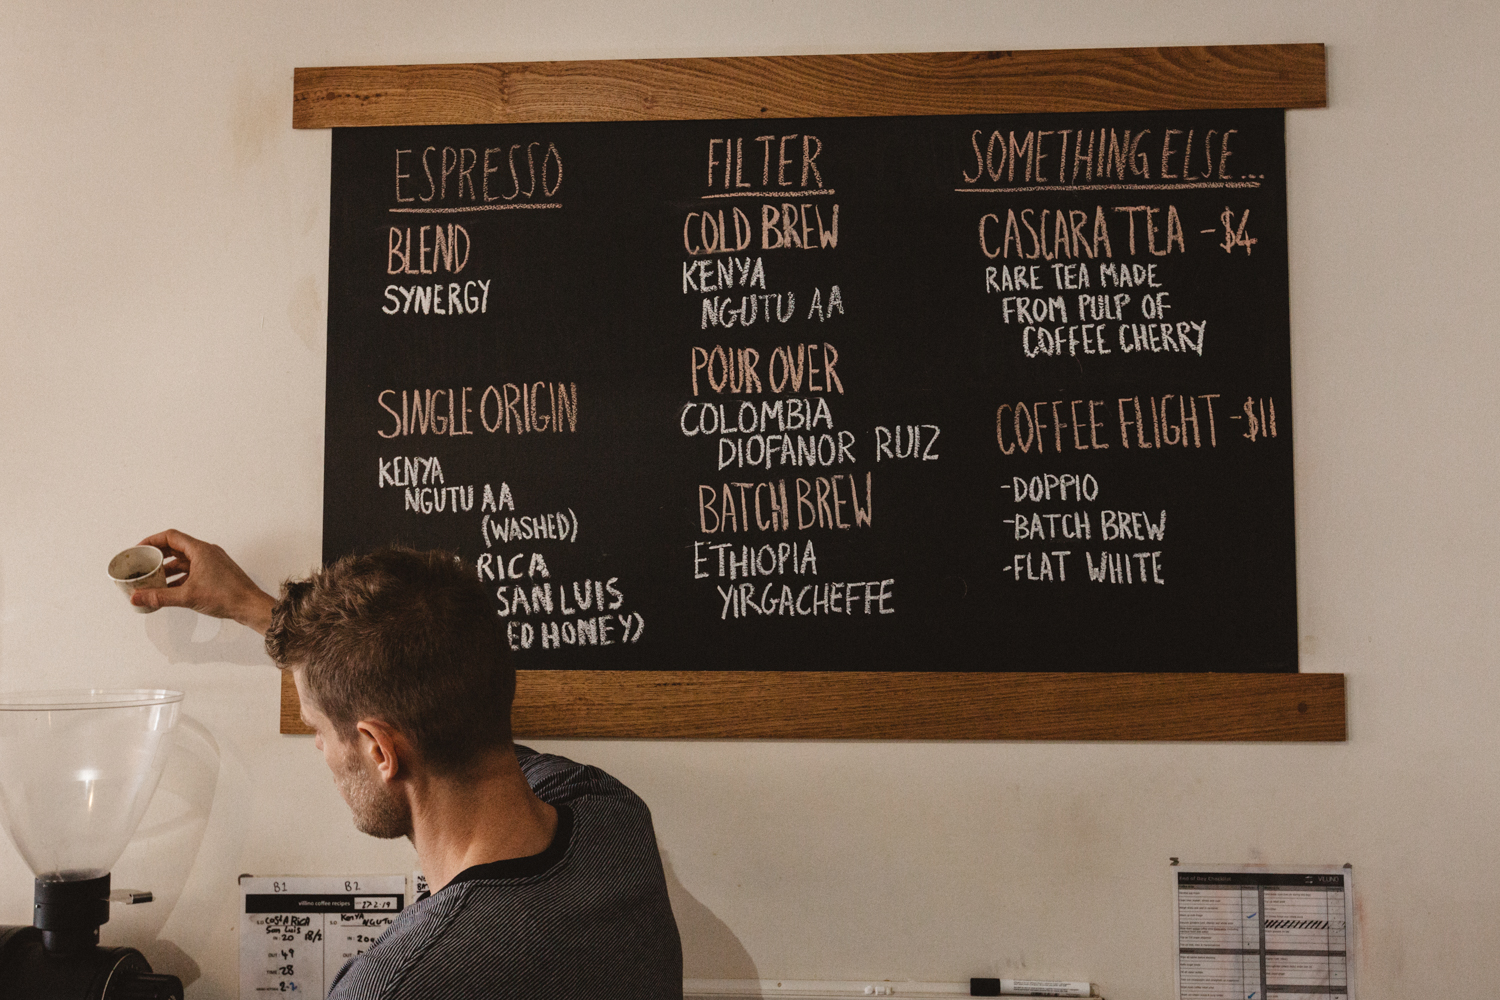 ESPRESSO
BLEND
SYNERGY
SINGLE ORIGIN
KENYA
NGUTU AA
(WASHED)
RICA
SAN LUIS
ED HONEY)
FILTER
COLD BREW
KENYA
NGUTU AA
POUR OVER
COLOMBIA
DIOFANOR RUIZ
BATCH BREW
ETHIOPIA
YIRGACHEFFE
SOMETHING ELSE...
CASCARA TEA - $4
RARE TEA MADE
FROM PULP OF
COFFEE CHERRY
COFFEE FLIGHT - $11
- DOPPIO
- BATCH BREW
- FLAT WHITE
B1 B2
villino coffee recipes 27-2-19
COSTA RICA
San Luis
IN: 20
OUT: 49
TIME: 28
KENYA
NGUTU
IN: 20
VILLINO